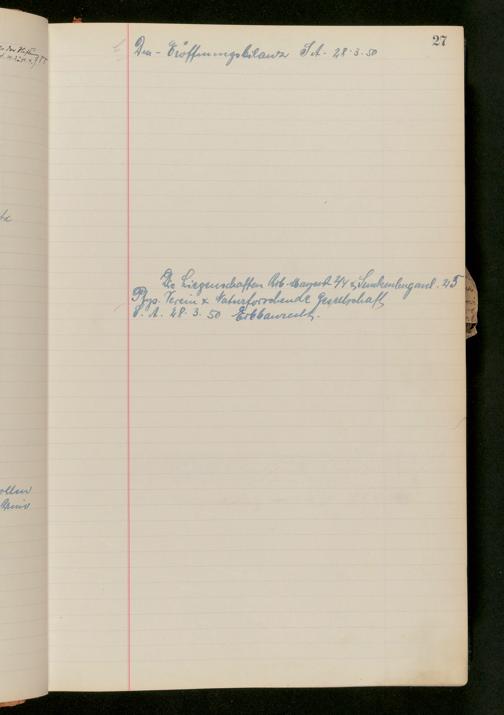 27
Dm-Eröffnungsbilanz S.A. 28.3.50
Die Liegenschaften Rob. Mayerst. 2/4 & Senckenbganl. 25
Phys. Verein & Naturforschende Gesellschaft
S. A. 28. 3. 50 Erbbaurecht.
ollen